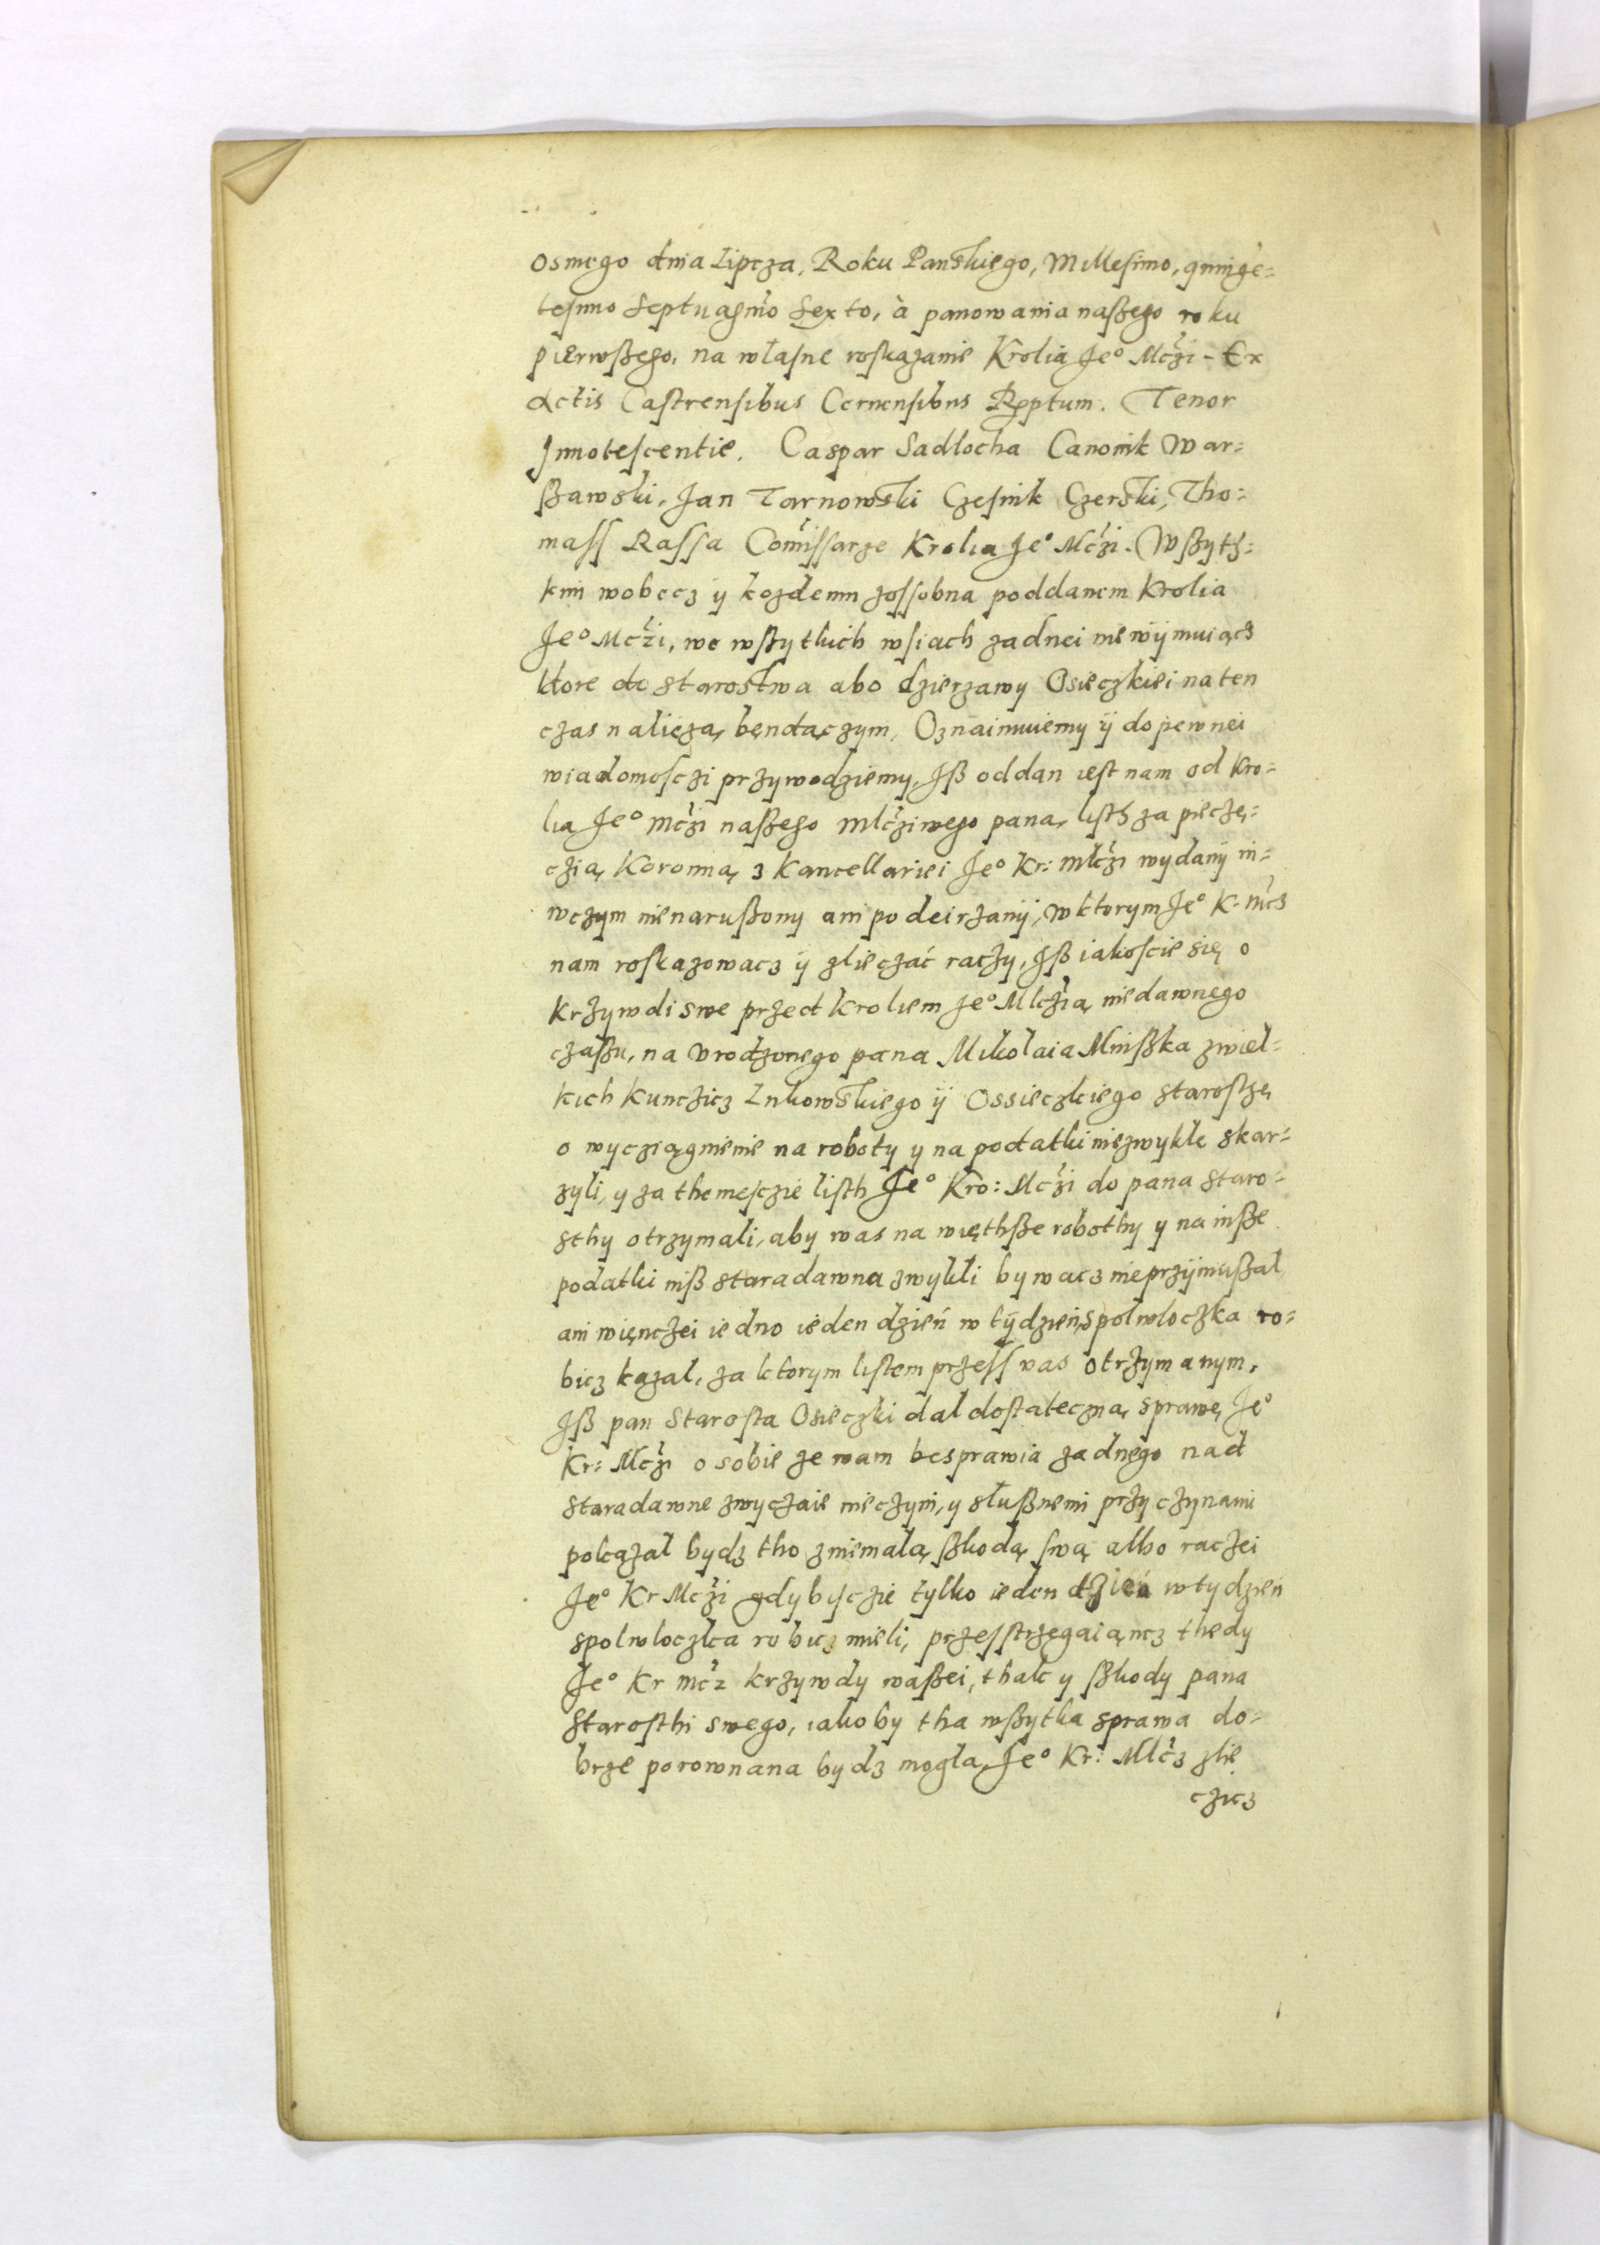 Osmego dnia Lipcza, Roku Panskiego, Millesimo, quinge=
tesimo Septuagmo Sexto, à panowania naßego roku
pierwßego, na własne roskazanie Krolia Jeº Mczi - Ex
Actis Castrensibus Cernensibus Rptum. Tenor
Innotescentie. Caspar Sadlocha Canonik War=
ßawski, Jan Tarnowski Czesnik Czerski, Tho=
mass Rassa Comissarze Krolia Jeº Mczi. Wßyth=
kim wobecz ÿ kozdemu zossobna poddanem Krolia
Jeº Mczi, we wßytkich wsiach zadnei nie wÿmuiącz
ktore do Starostwa abo dzierzawy Osieczkiei na ten
czas nalieżą, bęndączym, Oznaimuiemy ÿ do pewnei
wiadomosczi przywodziemy, Iß oddan iest nam od Kro=
lia Jeº mczi naßego mlcziwego pana, listh za pieczę=
czią Koronną z kancellariei Jeº Kr: mlczi wydanÿ ni=
wczym nienarußony ani podeirzanÿ, w ktorym Jeº K: mcz
nam roskazowacz ÿ zlieczać raczy, Iß iakoscie się o
krzywdi swe przed Kroliem Jeº Mlczią niedawnego
czaßu, na Vrodzonego pana Mikolaia Mnißka zwiel=
kich Kunczicz Lukowskiego ÿ Ossieczkiego Starostę
o wycziągnienie na roboty y na podatki niezwykłe skar=
zyli, y za the mesczie listh Jeº Kro: Mczi do pana Staro=
sthy otrzymali, aby was na więthße robothy y na inße
podatki niß staradawna zwykli bywacz nieprzÿmußal
ani więnczei iedno ieden dzień w tÿdzień, spolwloczka ro=
bicz kazal, za ktorym listem przess was otrzymanym,
Iß pan Starosta Osieczki dal dostateczną sprawę Jeº
Kr: Mlczi o sobie ze wam besprawia zadnego nad
staradawne zwyczaie nieczyni, y słußnemi przyczynami
pokazal bydz tho zniemalą ßkodą swą albo raczei
Jeº Kr Mczi gdybysczie tylko ieden dzień w tydzień
spolwloczka robicz mieli, przesstrzegaiąncz thedy
Jeº Kr mcz krzywdy waßei, thak y ßkody pana
Starosthi swego, iakoby tha wßytka sprawa do=
brze porownana bydz mogla, Jeº Kr: Mlcz zlie
czicz